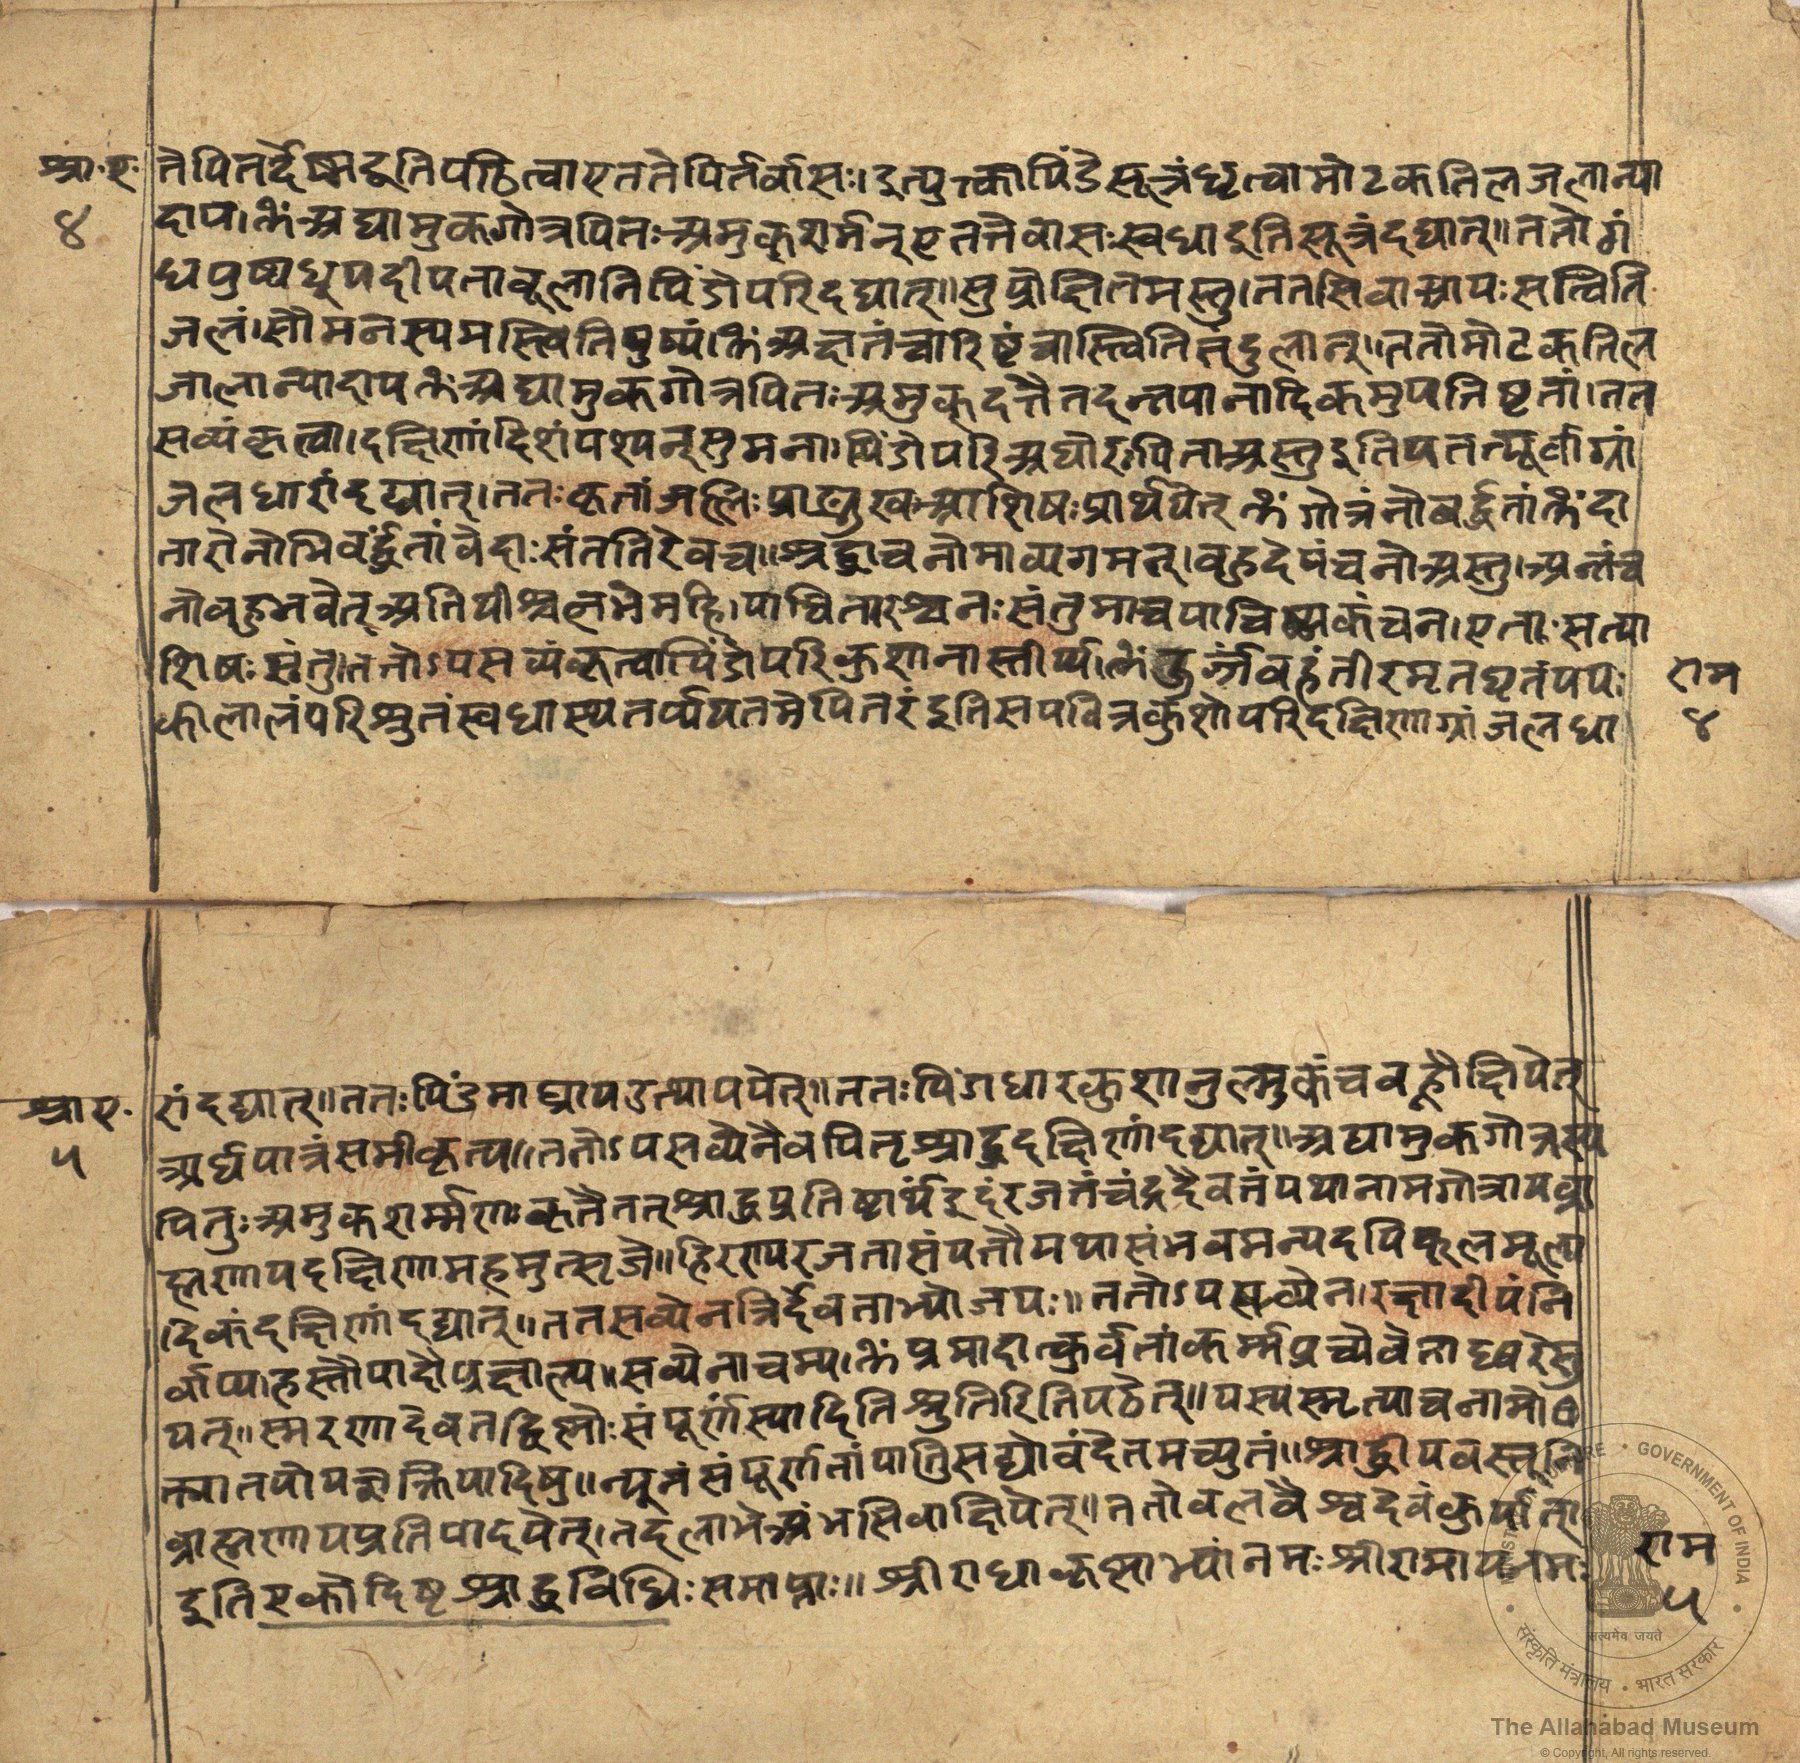 श्रा. ए.
४
तेपितर्देष्मइतिपठित्वाएततेपितर्वासः। इत्युत्कापिंडेसूत्रंधृत्वामोटकतिलजलान्या
दाय। ॐअद्यामुकगोत्रपितःअमुकशर्मन्एतत्तेवासःस्वधाइतिसूत्रंदद्यात्॥ततोगं
धपुष्पधूपदीपतावूलानिपिंडोपरिदद्यात्॥सुप्रोक्षितमस्तु।ततसिवाआपःसत्विति
जलं।सौमनस्यमस्त्वितिपुष्पं।ॐअक्षतंचारिष्टंचास्त्वितितंदुलान्॥ततोमोटकतिल
जालान्यादायॐअद्यामुकगोत्रपितःअमुकदत्तैतदन्नपानादिकमुपतिष्टतां।तत
सव्यंकृत्वा।दक्षिणांदिशंपश्यन्सुमना।पिंडोपरिअघोरःपिताअस्तुइतिपतत्पूर्वाग्रां
जलधारांदद्यात्।ततःकृतांजलिःप्राङ्मुखआशिषःप्रार्थयेत् ॐ गोत्रंनोवर्द्धतांॐदा
तारोनोभिवर्द्धतांवेदाःसंततिरेवच॥श्रद्धाचनोमाव्यगमत्।वहुदेयंचनोअस्तु।अन्नंच
नोवहुभवेत्अतिथीश्चलभेमहि।याचितारश्चनःसंतुमाचयाचिष्मकंचन।एताःसत्या
शिषःसंतु।ततोऽपसव्यंकृत्वापिंडोपरिकुशानास्तीर्य्य।ॐउर्ज्जंवहंतीरमृतघृतंपयः
कीलालंपरिश्रुतंस्वधास्थतर्प्पयतमेपितरंइतिसपवित्रकुशोपरिदक्षिणाग्रांजलधा
राम
४
श्रा ए.
५
रांदद्यात्॥ततःपिंडमाघ्रायउत्थापयेत्॥ततःपिंगधारकुशानुल्मुकंचवह्नौक्षिपेत्
अर्धपात्रंसमीकृत्य॥ततोऽपसव्येनैवपितृश्राद्धदक्षिणांदद्यात्॥अद्यामुकगोत्रस्य
पितुःअमुकशर्म्मणःकृतैतत्श्राद्धप्रतिष्टार्थंइदंरजतंचंद्रदैवतंयथानामगोत्रायव्रा
ह्मणायदक्षिणामहमुत्सृजे॥हिरण्यरजतासंपत्तौयथासंभवमन्यदपिफूलमूला
दिकंदक्षिणांदद्यात्॥ततसव्येनत्रिर्देवताभ्योजपः॥ततोऽपसव्येन।रक्षादीपंनि
र्वाप्य।हस्तौपादौप्रक्षाल्य॥सव्येनाचम्य।ॐप्रमादात्कुर्वतांकर्म्मप्रच्यवेताध्वरेसु
यत्॥स्मरणादेवतद्विष्णोःसंपूर्णंस्यादितिश्रुतिरितिपठेत्॥यस्यस्मृत्याचनामो
क्त्यातपोयज्ञक्रियादिषु॥न्यूनंसंपूर्णतांयातिसद्योवंदेतमच्युतं॥श्राद्धीयवस्तूनि
व्राह्मणायप्रतिपादयेत्।तदलाभेअंभसिवाक्षिपेत्॥ततोवलवैश्वदेवंकुर्यात्।
इतिएकोदिष्टश्राद्धविधिःसमाप्तः॥ श्रीराधाकृष्णाभ्यांनमः श्रीरामायनमः
राम
५
GOVERNMENT OF INDIA
सत्यमेव जयते
संस्कृति मंत्रालय • भारत सरकार
The Allahabad Museum
© Copyright, All rights reserved